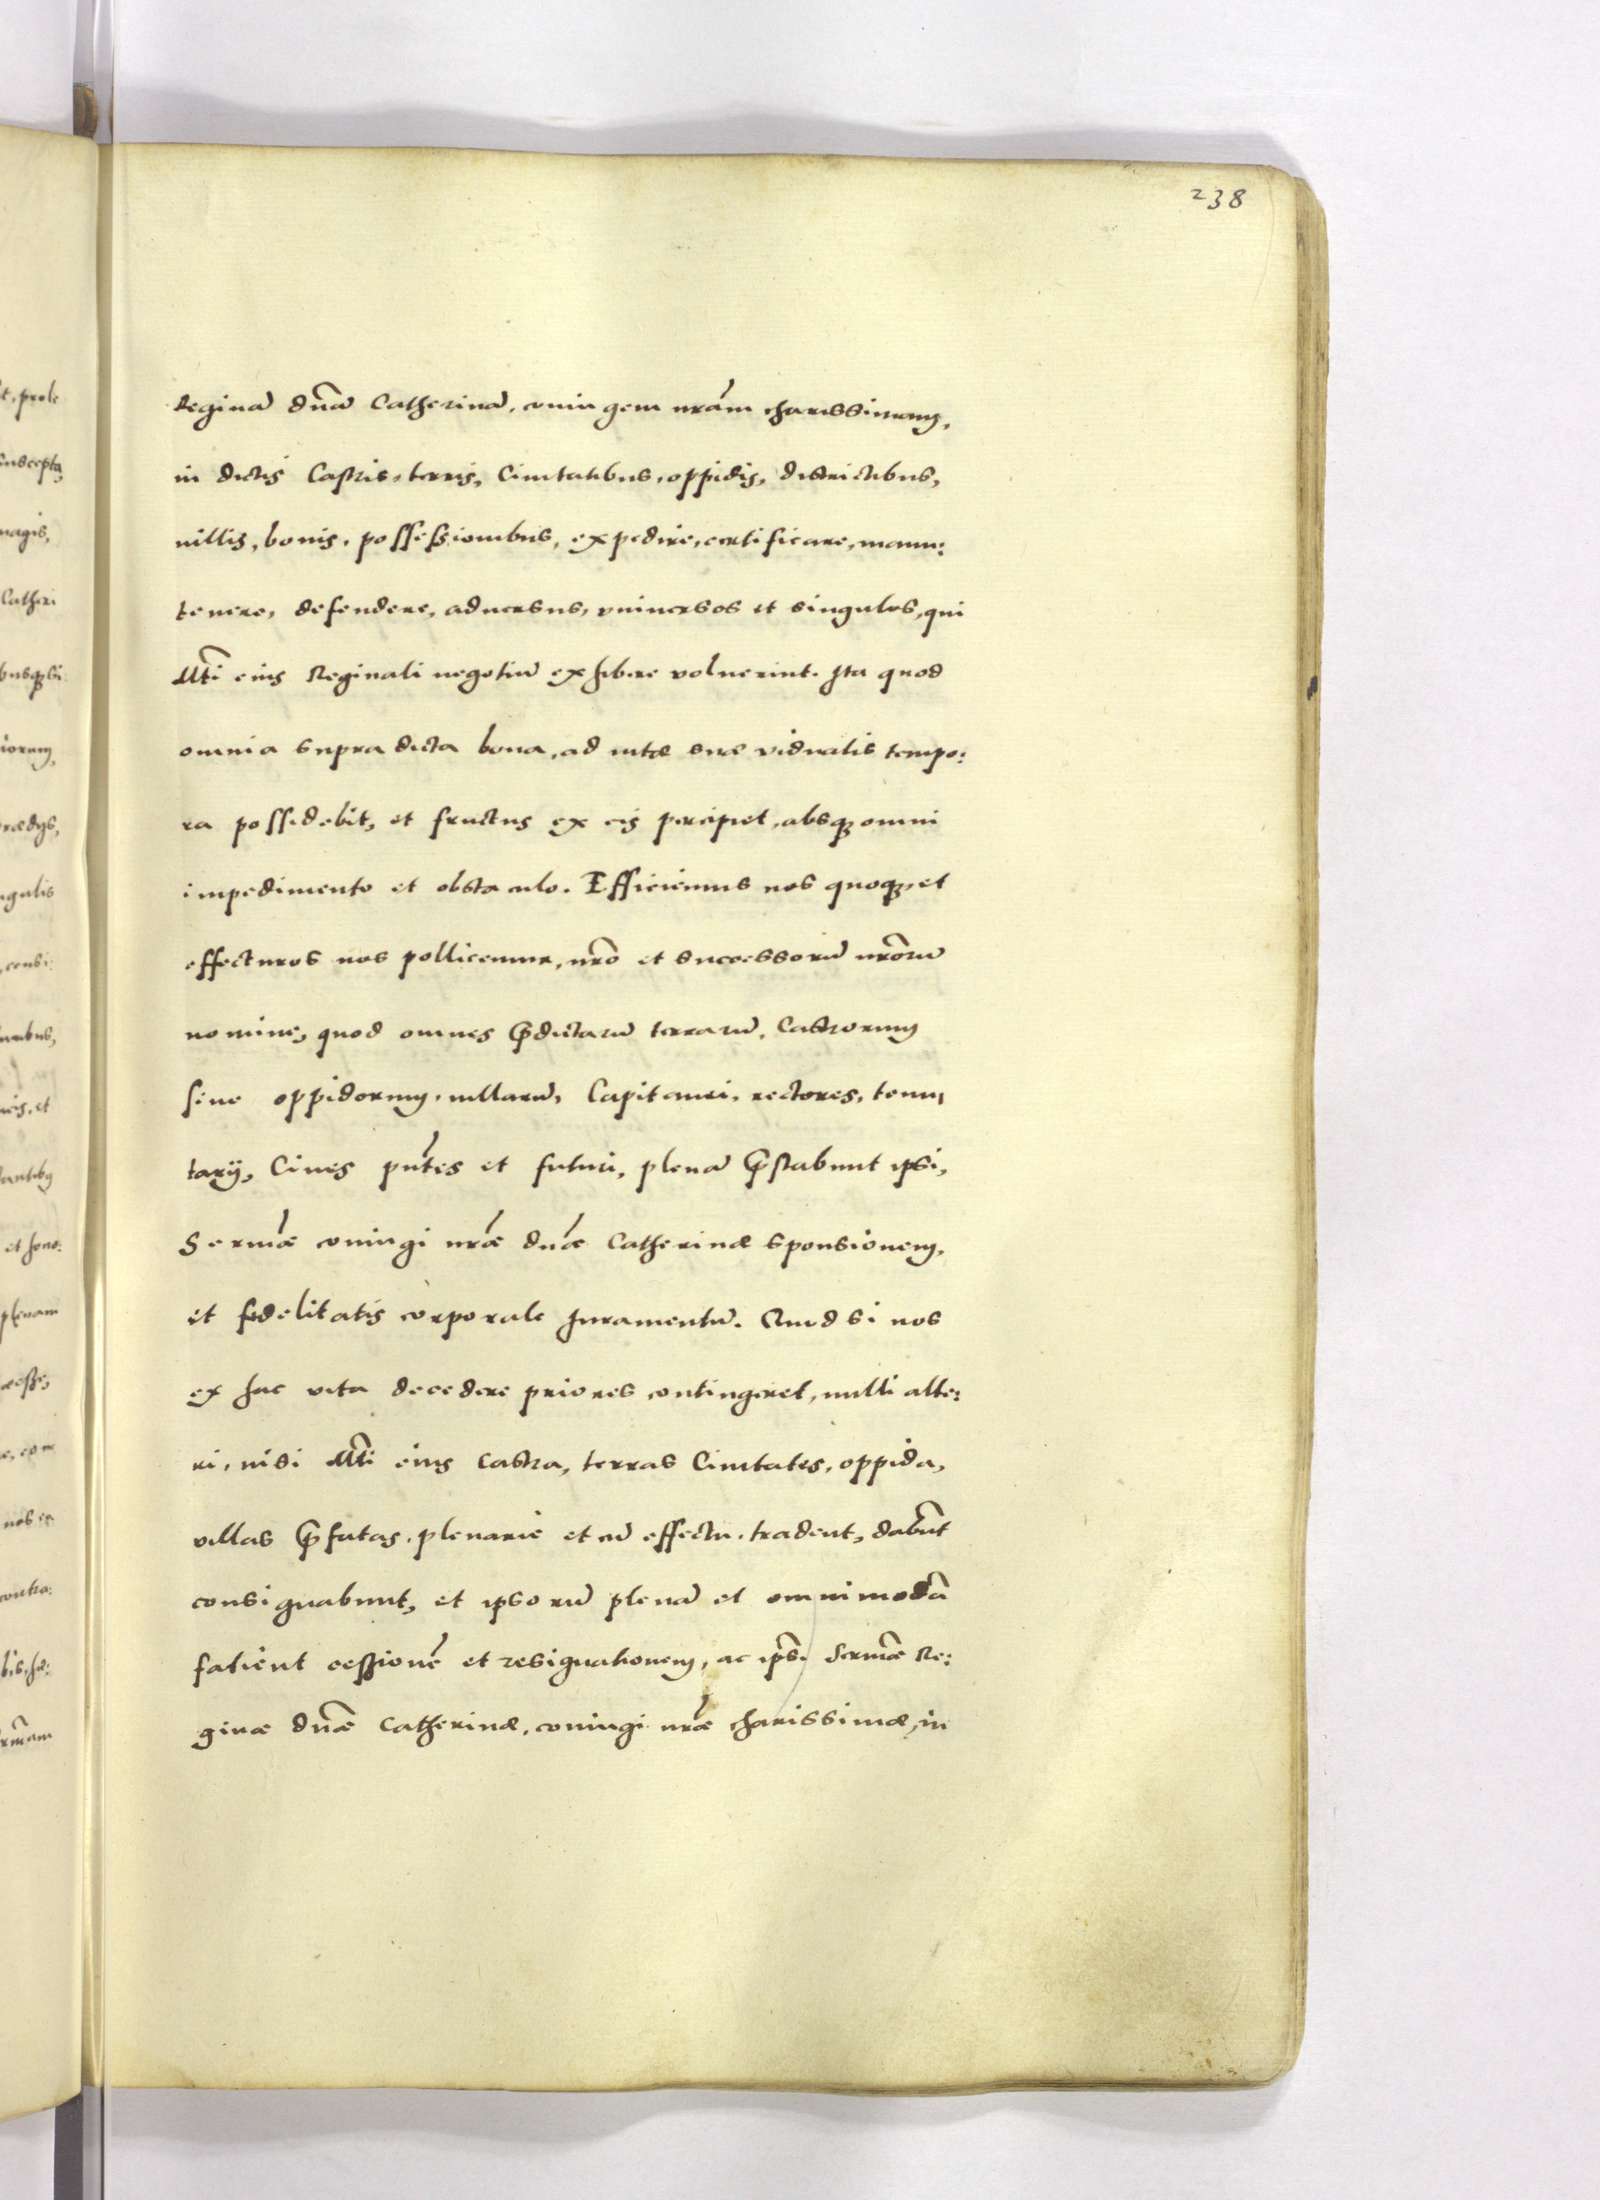 238
Reginā dn̄ā Catherinā, coniugem nrám charissimam,
in dictis Castris, terris, Ciuitatibus, oppidis, districtibus,
uillis, bonis, possessionibus, expedire, certificare, manu:
tenere, defendere, aduersus, vniuersos et singulos, qui
Mti eius Reginali negotiū exhibere voluerint. Ita quod
omnia supra dicta bona, ad uitæ suæ vidualis tempo:
ra possidebit, et fructus ex eis percipiet, absqꝫ omni
impedimento et obstaculo. Efficiemus nos quoqꝫ, et
effecturos nos pollicemur, nrō et successorū nrōrū
nomine, quod omnes p̄dictarū terrarū, Castrorum
siue oppidorum, uillarū, Capitanei, rectores, tenu
tarij, Ciues pn̄tes et futuri, plenā p̄stabunt ipsi,
Sermæ coniugi nræ dnæ Catherinæ sponsionem,
et fidelitatis corporale Iuramentū. Quod si nos
ex hac vita decedere priores contingeret, nulli alte:
ri, nisi Mti eius Castra, terras Ciuitates, oppida,
villas p̄fatas, plenarie et cū effectu, tradent, dabūt
consignabunt, et ipsorū plenā et omnimodā
fatient cessionē et resignationem, ac ips̄i Sermæ Re:
ginæ dnæ Catherinæ, coniugi nræ charissimæ, in
t, prole
suscepta,
magis,
Catheri
iorum,
rædijs,
ngulis
, consi:
et hono:
plenam
contra: